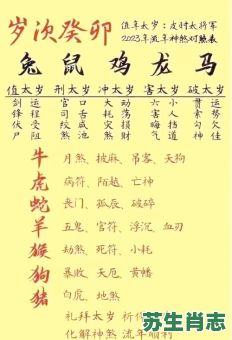 岁次癸卯
值年太岁：皮时大将军
2023年流年神煞对照表
兔 鼠 鸡 龙 马
值太岁 刑太岁 冲太岁 害太岁 破太岁
剑 运 官 口 大 动 六 小 贯 运
锋 程 司 舌 耗 荡 害 人 索 势
伏 受 绞 咸 灾 损 晦 挡 勾 欠
尸 阻 煞 池 煞 财 气 道 神 佳
牛 月煞、披麻、吊客、天狗
虎 病符、陌越、亡神
蛇 丧门、孤辰、破碎
羊 五鬼、官符、浮沉、血刃
猴 劫煞、死符、小耗
狗 暴败、天厄、黄幡
猪 白虎、地煞
礼拜太岁 祈
化解神煞 流年顺
苏生肖志